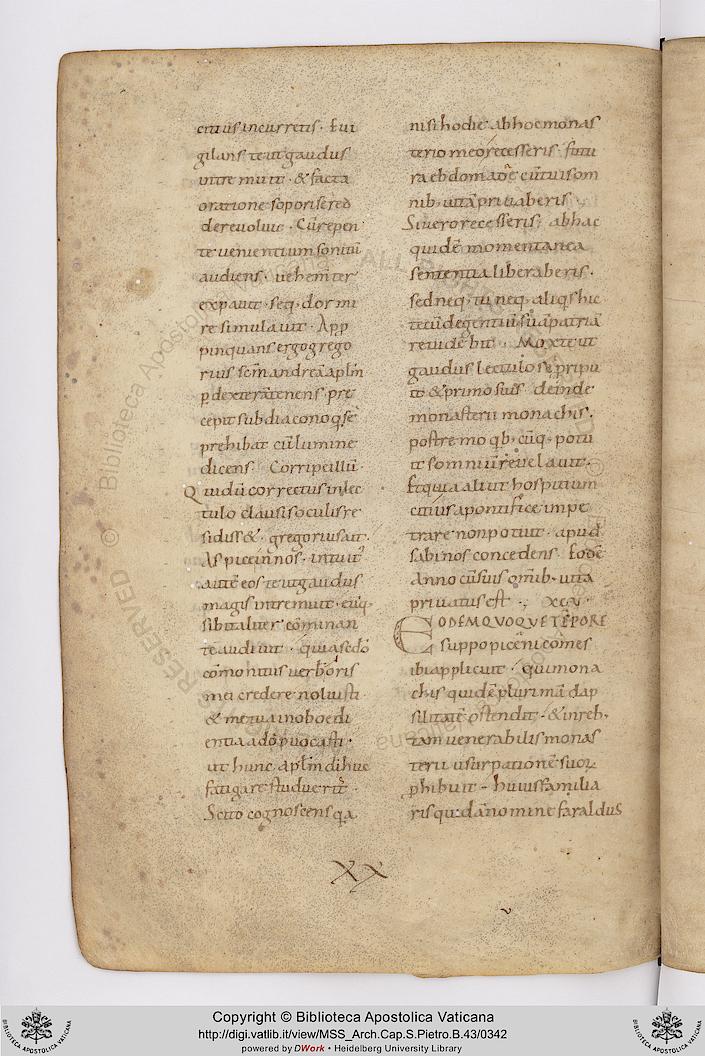 citius incurretis · Evi
gilans teutgaudus
intremuit · & facta
oratione sopori se red
dere voluit · Cū repen
te venientium sonitū
audiens · vehem̄ter
expavit · seq · dormi
re simulavit · App
pinquans ergo grego
rius sc̄m andreā apl̄m
p dexterā tenens · pre
cepit subdiacono
prehibat cū lumine
dicens · Corripe illū ·
Qui dū correctus in lec
tulo clausis oculis re
sidss& · gregorius ait ·
Aspice in nos · intuit
autē eos teutgaudus
magis intremuit · eūq ·
sibi taliter com̄inan
te audivit · quia sedō
com̄onitus verboris
mei credere noluisti ·
& me tua inoboedi
entia ad
ut hunc apl̄m di huc
fatigare studuerit
Scito cognoscens q̄a
nisi hodie ab hoc monas
terio meo recesseris · futu
ra ebdomade cū tui som
nib · vita privaberis ·
Si vero recesseris · ab hac
quidē momentanea
sententia liberaberis ·
sed neq · tu neq · aliq̄s hic
tecū degentiū suā patriā
revidebit · Mox teut
gaudus lectulo se pripu
it & primo suis deinde
monasterii monachis ·
postremo qb · cūq · potu
it somniū revelavit ·
Et quia aliut hospitium
citius a pontifice impe
trare non potuit · apud
sabinos concedens · Eodē
anno cū suis om̄ib · vita
privatus est ·
EODEM QVOQVE TĒPORE
suppo piceni comes
ibi applicuit · qui mona
chis quidē plurimā dap
silitatē ostendit · & in reb ·
tam venerabilis monas
terii usurpationē suor
phibuit · huius familia
ris quidā nomine faraldus
XX
Copyright © Biblioteca Apostolica Vaticana
http://digi.vatlib.it/view/MSS_Arch.Cap.S.Pietro.B.43/0342
powered by DWork • Heidelberg University Library